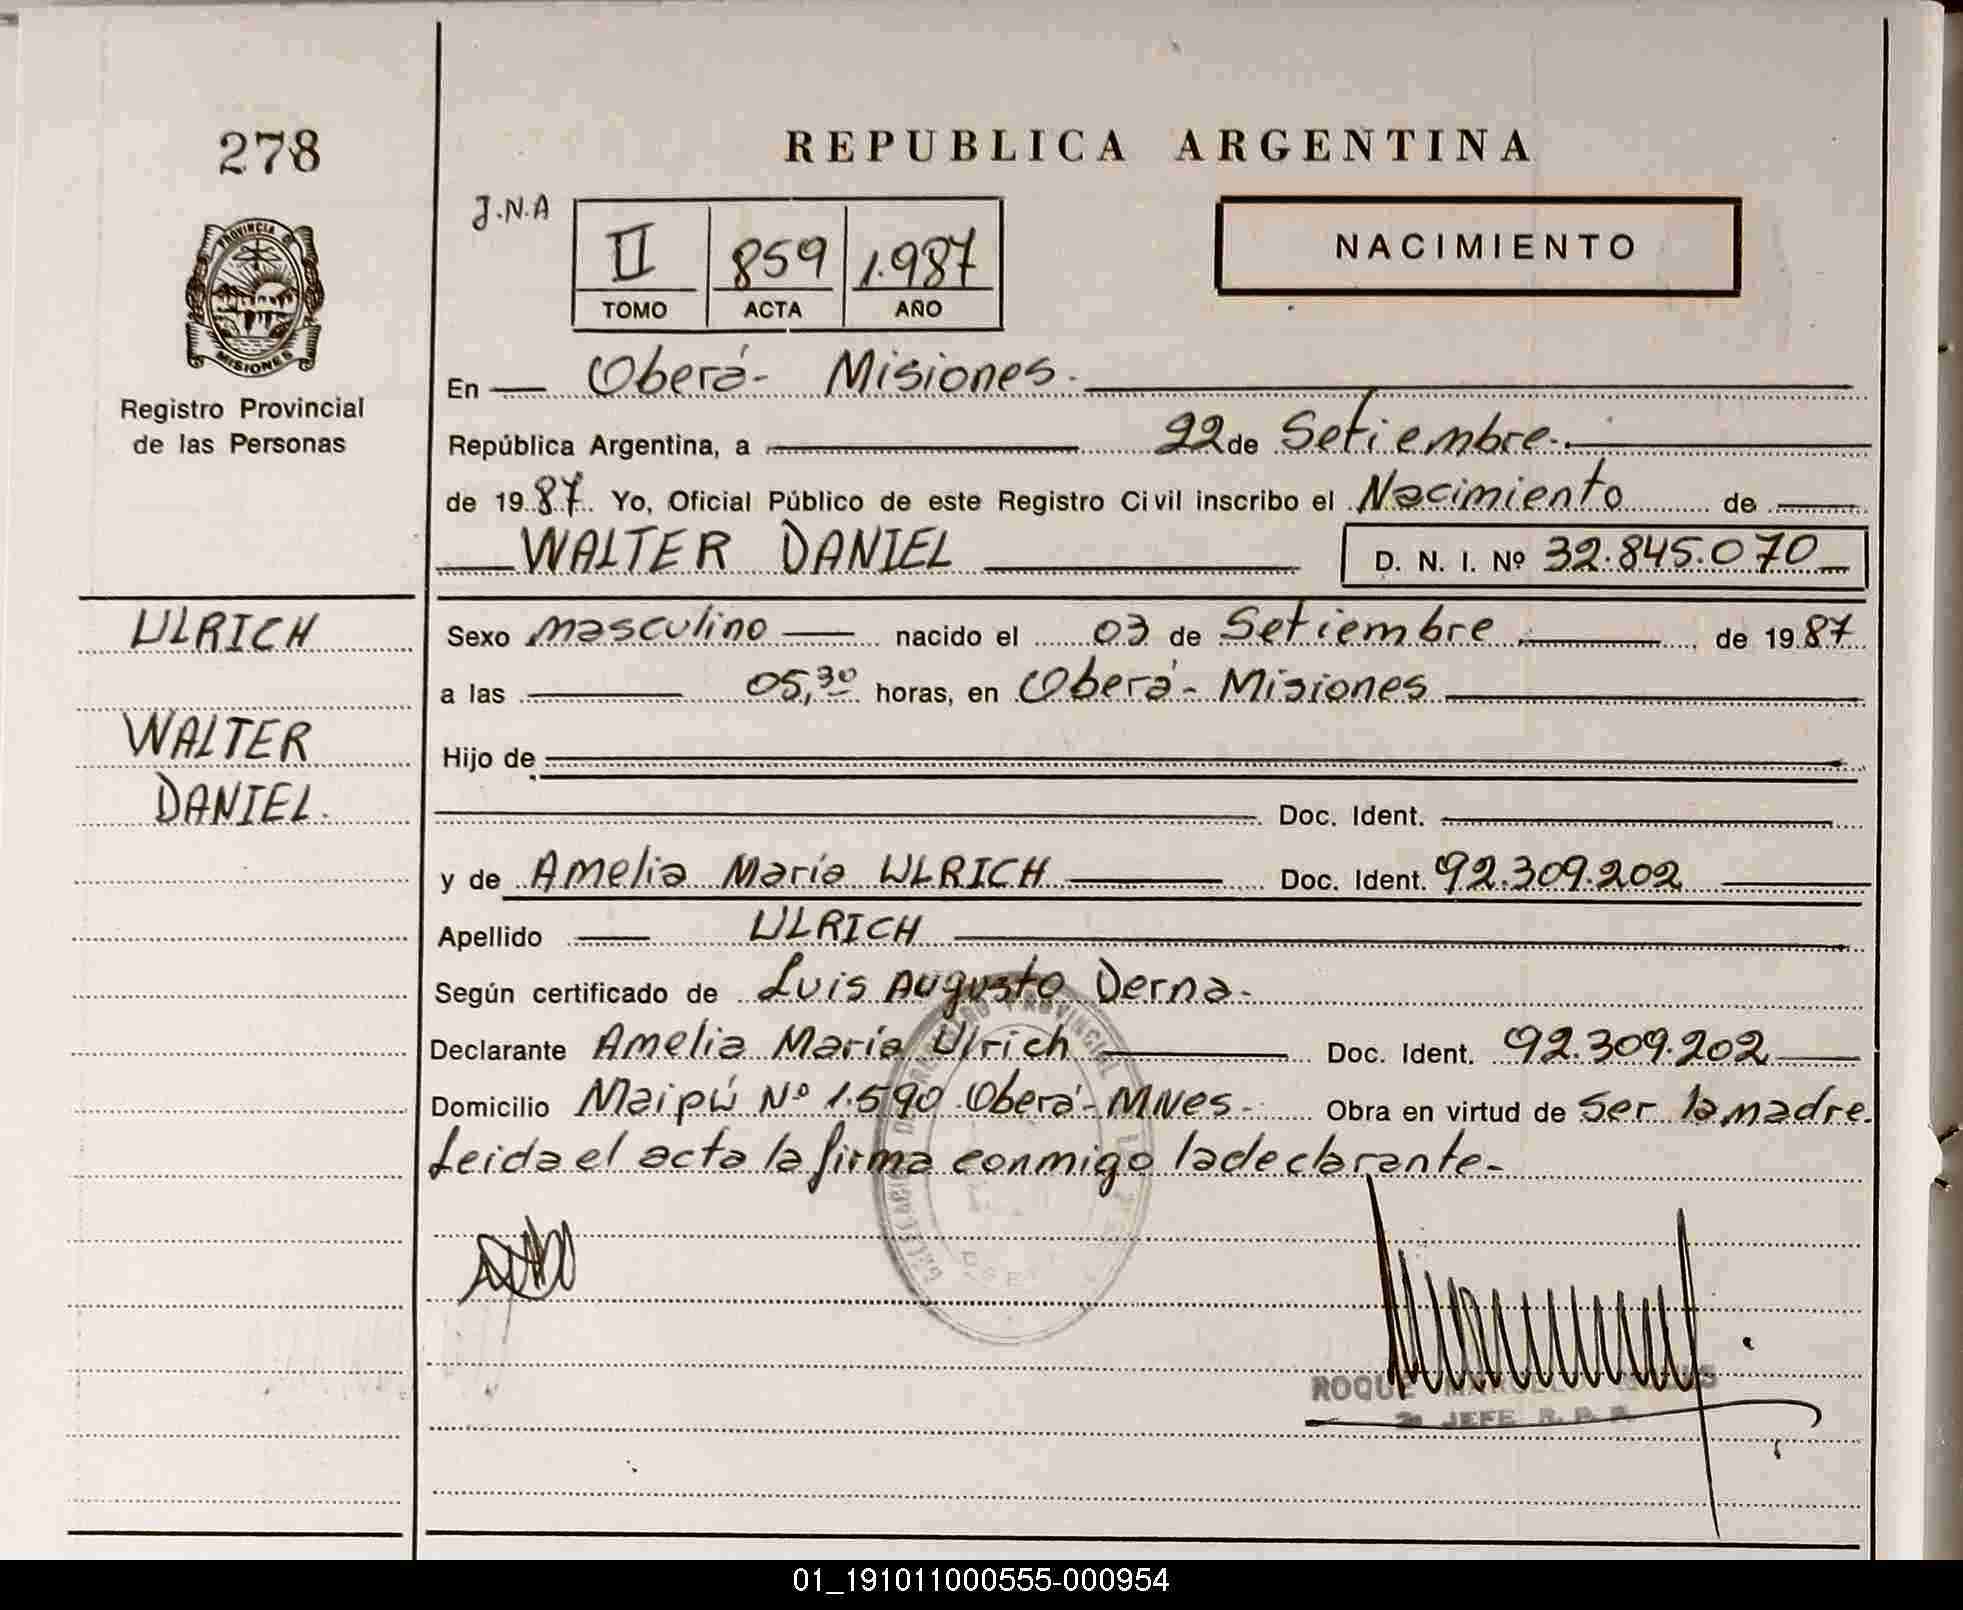 278
REPUBLICA ARGENTINA
J.N.A
II 859 1.987
TOMO ACTA AÑO
NACIMIENTO
PROVINCIA DE
MISIONES
Registro Provincial
de las Personas
En Oberá- Misiones.
República Argentina, a 22 de Setiembre.
de 19 87 Yo, Oficial Público de este Registro Civil inscribo el Nacimiento de
WALTER DANIEL D. N. I. Nº 32.845.070
ULRICH
WALTER
DANIEL.
Sexo masculino nacido el 03 de Setiembre de 19 87
a las 05,30 horas, en Oberá- Misiones
Hijo de
Doc. Ident.
y de Amelia María ULRICH Doc. Ident. 92.309.202
Apellido ULRICH
Según certificado de Luis Augusto Derna-
Declarante Amelia María Ulrich Doc. Ident. 92.309.202
Domicilio Maipú Nº 1.590 Oberá- MNes- Obra en virtud de Ser la madre.
Leida el acta la firma conmigo la declarante-
PROVINCIAL
ROQUE
2º JEFE R. P. P.
01_191011000555-000954